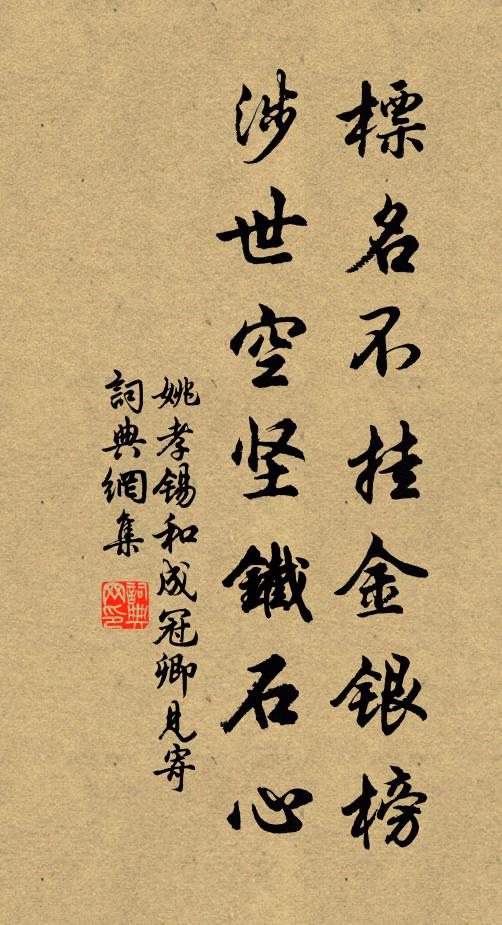 標名不挂金銀榜
涉世空坚鐵石心
姚孝锡和成冠卿見寄
詞典網集
詞典网印